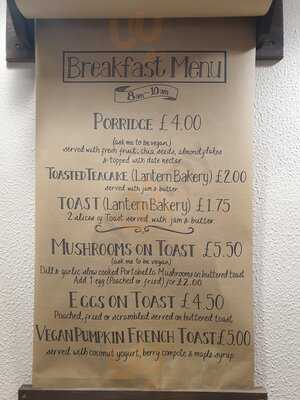 Breakfast Menu
8am-10am
PORRIDGE £4.00
(ask me to be vegan)
served with fresh fruit, chia seeds, almond flakes
& topped with date nectar
TOASTED TEACAKE (Lantern Bakery) £2.00
served with jam & butter
TOAST (Lantern Bakery) £1.75
2 slices of Toast served with jam & butter
MUSHROOMS ON TOAST £5.50
(ask me to be vegan)
Dill & garlic slow cooked Portobello Mushrooms on buttered toast
Add 1 egg (Poached or fried) for £2.00
EGGS ON TOAST £4.50
Poached, fried or scrambled served on buttered toast
VEGAN PUMPKIN FRENCH TOAST £5.00
served with coconut yogurt, berry compote & maple syrup